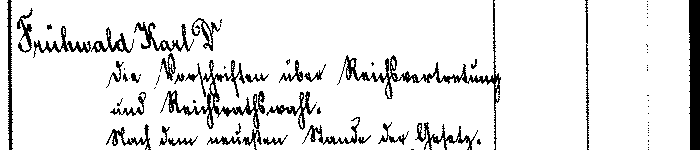 Frühwald Karl Dr
die Vorschriften über Reichsvertretung
und Reichsrathswahl.
Nach dem neuesten Stande der Gesetz.